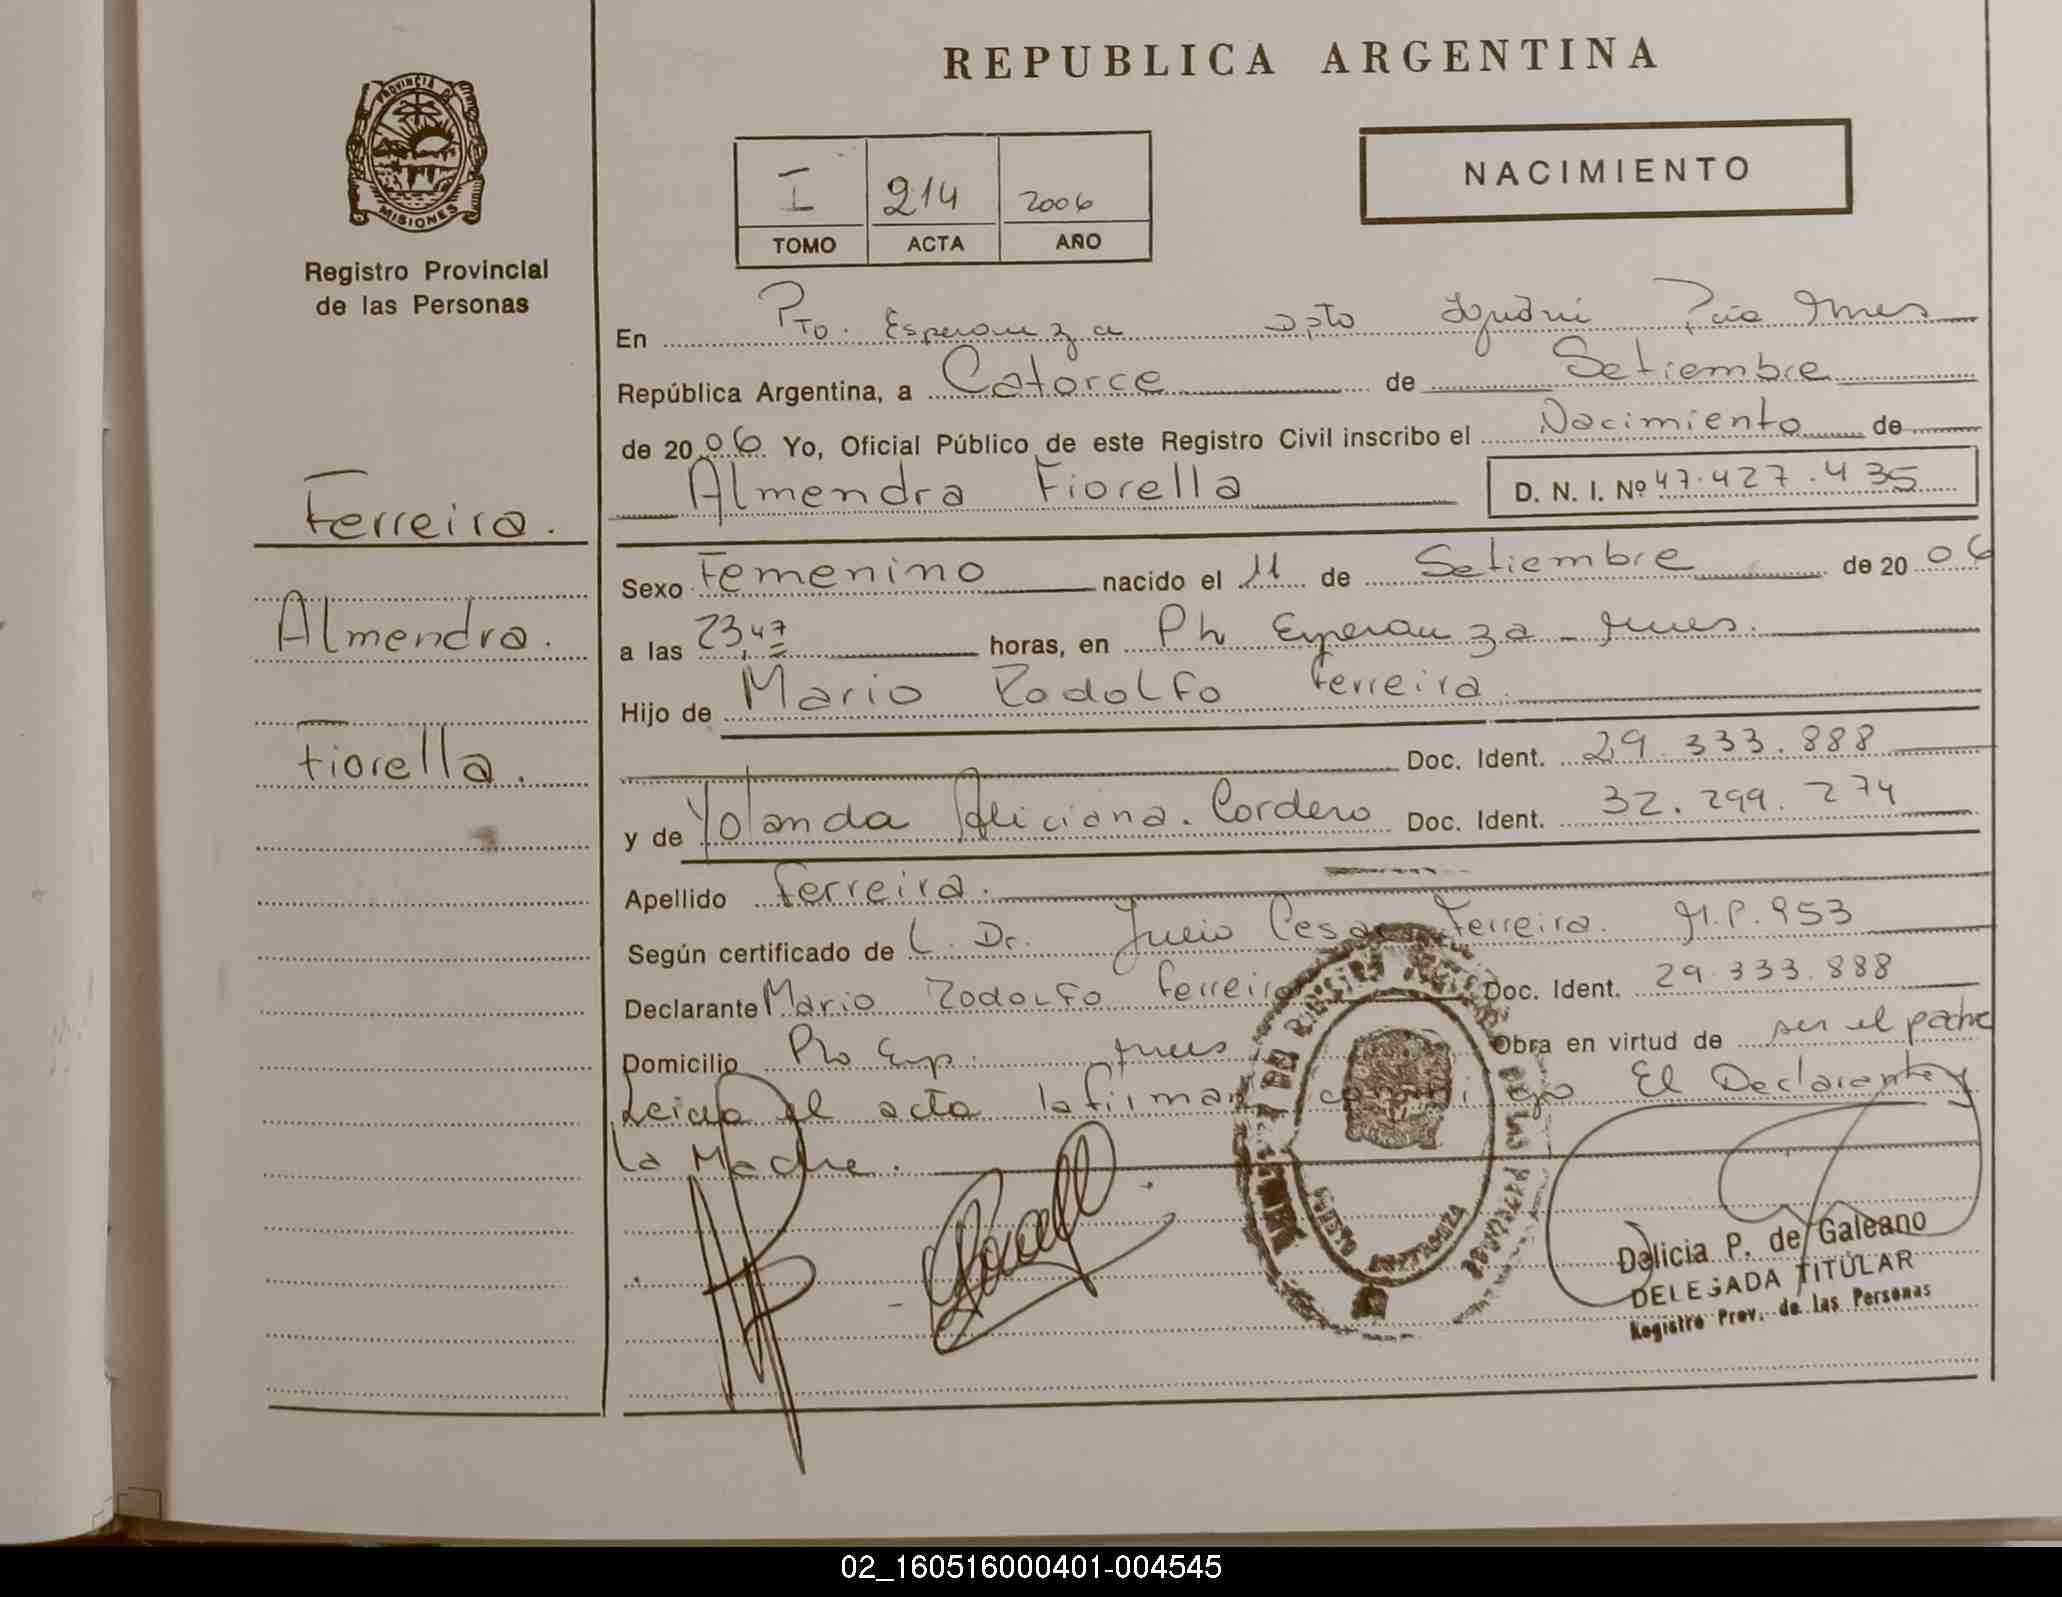 REPUBLICA ARGENTINA
PROVINCIA D
MISIONES
Registro Provincial
de las Personas
NACIMIENTO
I 214 2006
TOMO ACTA AÑO
En Pto. Esperanza Dpto Iguazú Pcia Mnes
República Argentina, a Catorce de Setiembre
de 2006 Yo, Oficial Público de este Registro Civil inscribo el Nacimiento de
Almendra Fiorella D. N. I. Nº 47.427.435
Ferreira.
Almendra.
Fiorella.
Sexo Femenino nacido el 11 de Setiembre de 2006
a las 23,47 horas, en Pto Esperanza - Mnes.
Hijo de Mario Rodolfo Ferreira
Doc. Ident. 29.333.888
y de Yolanda Feliciana. Cordero Doc. Ident. 32.299.274
Apellido Ferreira.
Según certificado de L. Dr. Julio Cesar Ferreira. M.P. 953
Declarante Mario Rodolfo Ferreira Doc. Ident. 29.333.888
Domicilio Pto Esp. Mnes Obra en virtud de ser el padre
Leida el acta la firman El Declarante y
la Madre.
Delicia P. de Galeano
DELEGADA TITULAR
Registro Prov. de las Personas
02_160516000401-004545